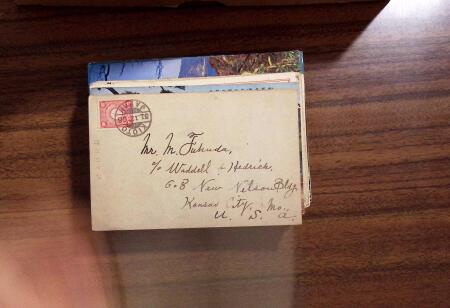 JAPAN
KIOTO
Mr. M. Fukuda,
c/o Waddell & Hedrick,
608 New Nelson Bldg,
Kansas City, Mo.,
U. S. A.